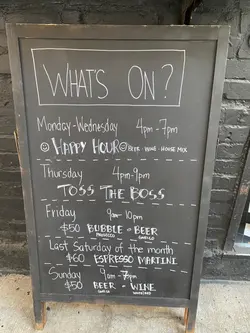 WHAT'S ON?
Monday-Wednesday 4pm-7pm
HAPPY HOUR BEER · WINE · HOUSE MIX
Thursday 4pm-9pm
TOSS THE BOSS
Friday 9am-10pm
$50 BUBBLE + BEER
PROSECCO
Last Saturday of the month
$60 ESPRESSO MARTINI
Sunday 9am-7pm
$50 BEER + WINE